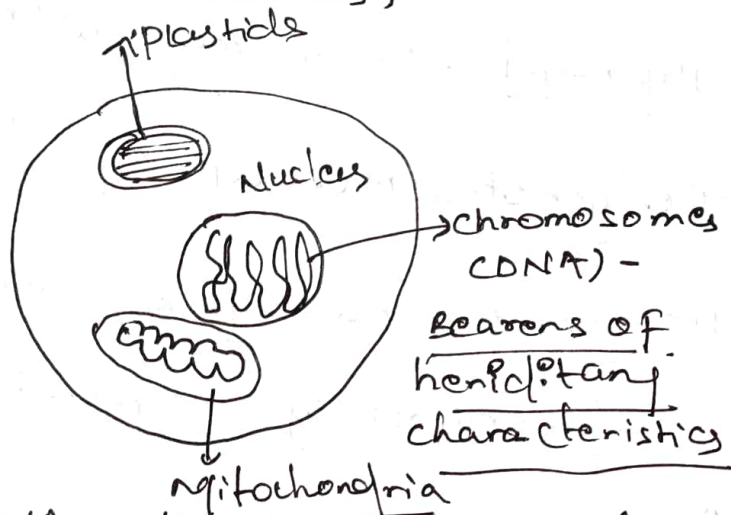 Plastids
Nucleus
chromosomes
(DNA) -
Bearers of
heriditary
characteristics
Mitochondria